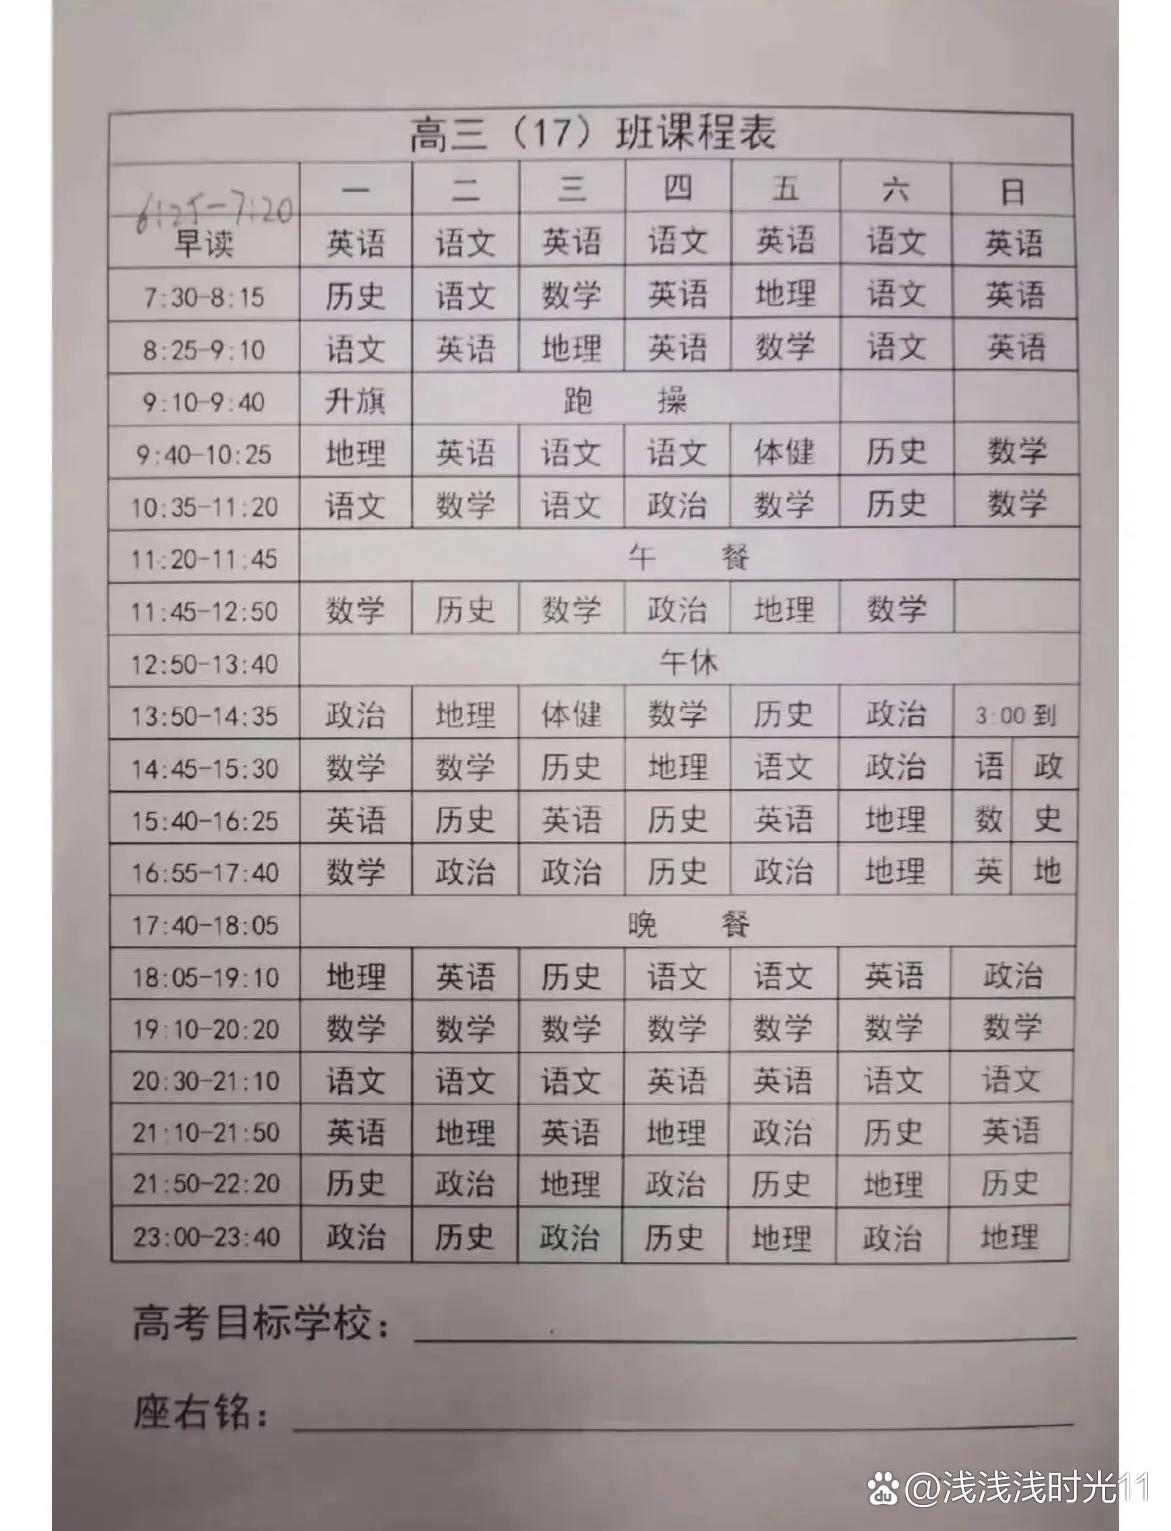 高三（17）班课程表
一 二 三 四 五 六 日
6:25-7:20
早读 英语 语文 英语 语文 英语 语文 英语
7:30-8:15 历史 语文 数学 英语 地理 语文 英语
8:25-9:10 语文 英语 地理 英语 数学 语文 英语
9:10-9:40 升旗 跑 操
9:40-10:25 地理 英语 语文 语文 体健 历史 数学
10:35-11:20 语文 数学 语文 政治 数学 历史 数学
11:20-11:45 午 餐
11:45-12:50 数学 历史 数学 政治 地理 数学
12:50-13:40 午休
13:50-14:35 政治 地理 体健 数学 历史 政治 3:00到
14:45-15:30 数学 数学 历史 地理 语文 政治 语 政
15:40-16:25 英语 历史 英语 历史 英语 地理 数 史
16:55-17:40 数学 政治 政治 历史 政治 地理 英 地
17:40-18:05 晚 餐
18:05-19:10 地理 英语 历史 语文 语文 英语 政治
19:10-20:20 数学 数学 数学 数学 数学 数学 数学
20:30-21:10 语文 语文 语文 英语 英语 语文 语文
21:10-21:50 英语 地理 英语 地理 政治 历史 英语
21:50-22:20 历史 政治 地理 政治 历史 地理 历史
23:00-23:40 政治 历史 政治 历史 地理 政治 地理
高考目标学校：
座右铭：
du @浅浅浅时光11